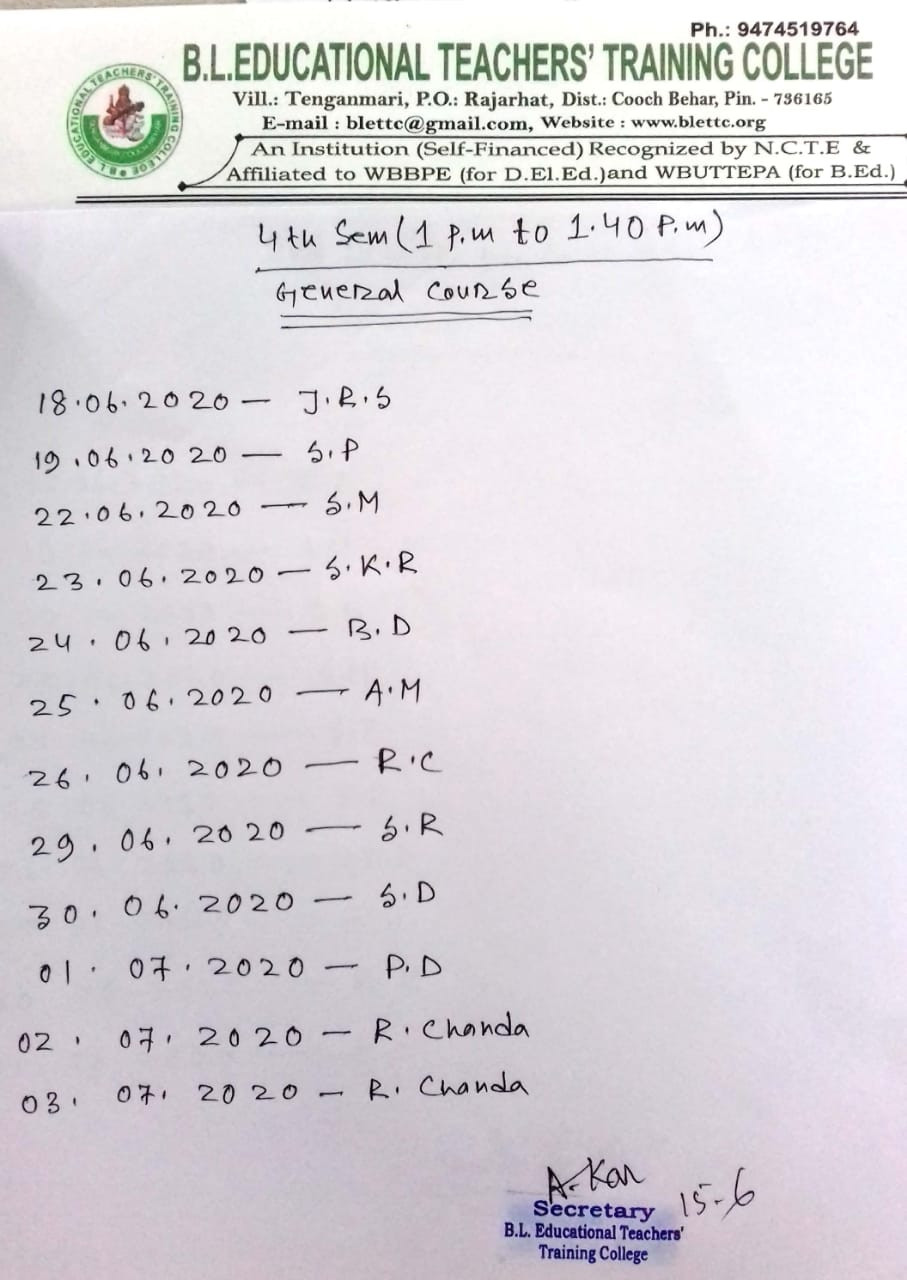 Ph.: 9474519764
B.L.EDUCATIONAL TEACHERS' TRAINING COLLEGE
Vill.: Tenganmari, P.O.: Rajarhat, Dist.: Cooch Behar, Pin. - 736165
E-mail : blettc@gmail.com, Website : www.blettc.org
An Institution (Self-Financed) Recognized by N.C.T.E &
Affiliated to WBBPE (for D.El.Ed.)and WBUTTEPA (for B.Ed.)
B.L EDUCATIONAL TEACHERS' TRAINING COLLEGE
4th Sem (1 P.m to 1.40 P.m)
General Course
18.06.2020 — J.R.S
19.06.2020 — S.P
22.06.2020 — S.M
23.06.2020 — S.K.R
24.06.2020 — B.D
25.06.2020 — A.M
26.06.2020 — R.C
29.06.2020 — S.R
30.06.2020 — S.D
01.07.2020 — P.D
02.07.2020 — R.Chanda
03.07.2020 — R.Chanda
A.Kar
15-6
Secretary
B.L. Educational Teachers'
Training College